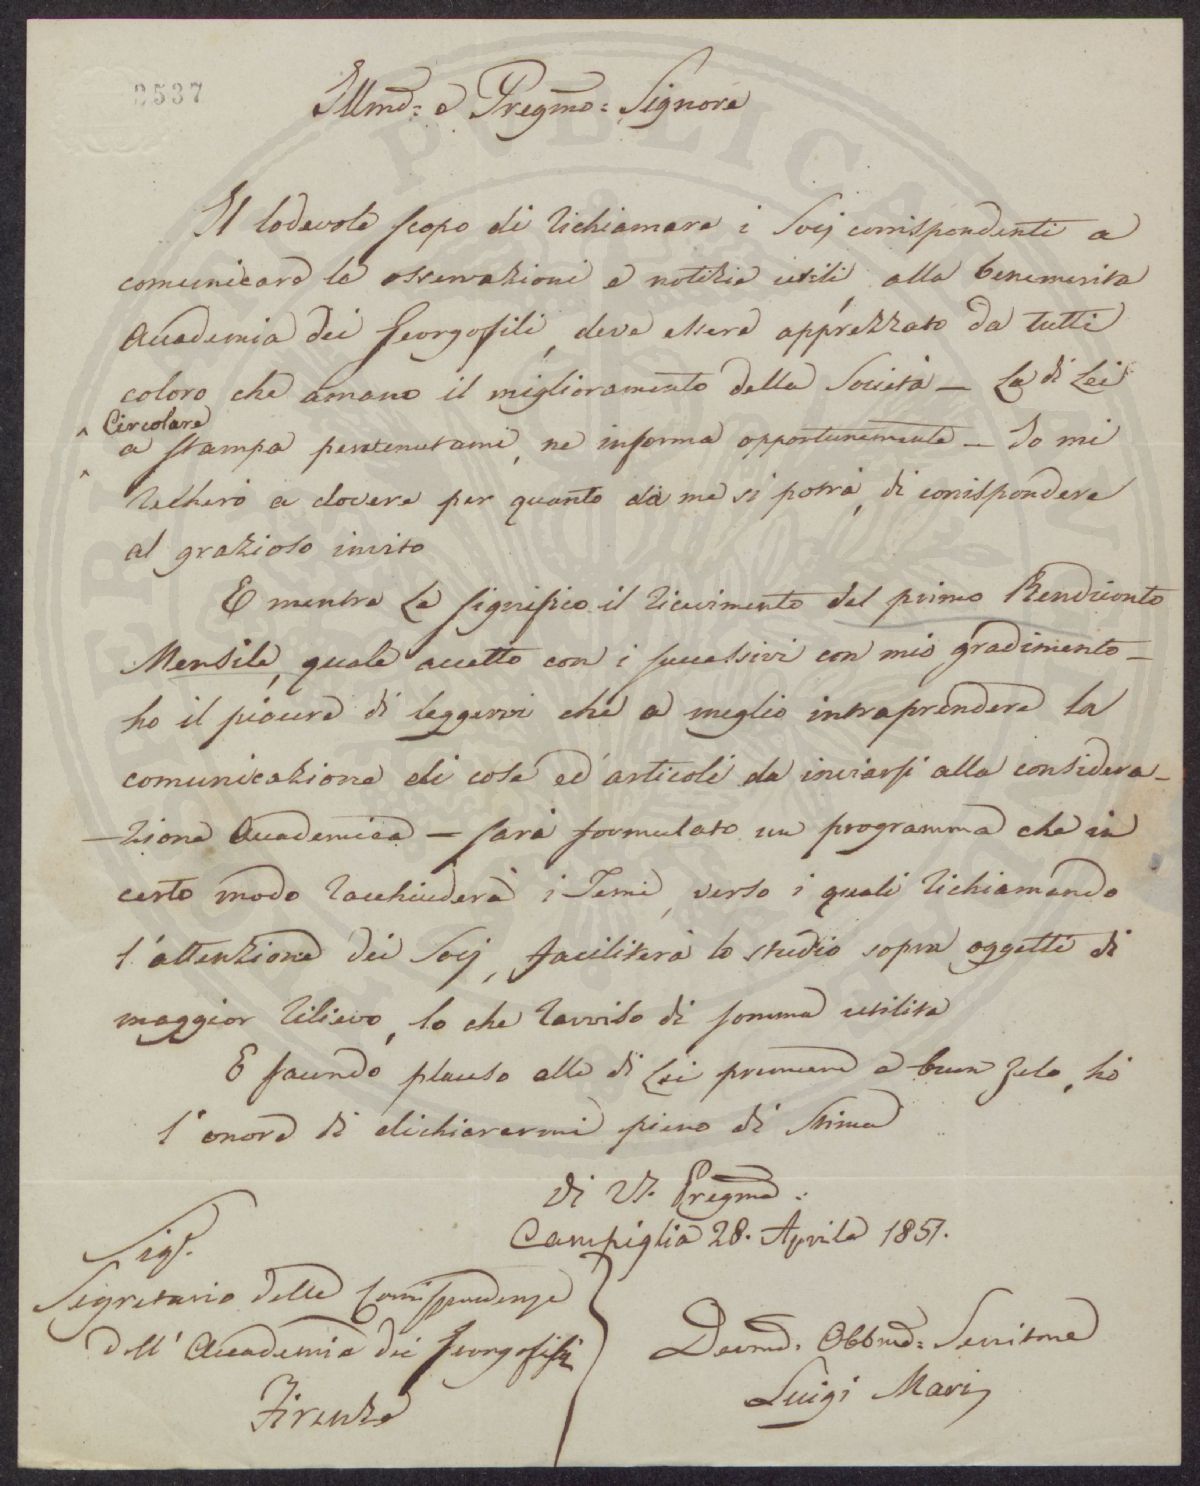 3537
Illmo: e Pregmo: Signore
Il lodevole scopo di richiamare i Socj corrispondenti a
comunicare le osservazioni e notizie utili, alla benemerita
Accademia dei Georgofili, deve essere apprezzato da tutti
coloro che amano il miglioramento della Società – La di Lei
Circolare
a stampa pervenutami, ne informa opportunemente – Io mi
recherò a dovere per quanto da me si potrà, di corrispondere
al grazioso invito
E mentre Le significo il ricevimento del primo Rendiconto
Mensile, quale accetto con i successivi con mio gradimento –
ho il piacere di leggervi che a meglio intraprendere la
comunicazione di cose ed articoli da inviarsi alla considera-
-zione Accademica – sarà formulato un programma che in
certo modo racchiuderà i Temi, verso i quali richiamando
l'attenzione dei Socj, faciliterà lo studio sopra oggetti di
maggior rilievo, lo che ravviso di somma utilità
E facendo plauso alle di Lei premure e buon zelo, ho
l'onore di dichiararmi pieno di stima
Di V. S. Pregma:
Campiglia 28. Aprile 1857.
Sigr.
Segretario delle Corrispondenze
dell' Accademia dei Georgofili
Firenze
Devmo. Obbmo: Servitore
Luigi Mari
PUBLICA